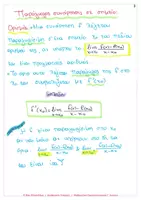 Παράγωγος συνάρτησης σε σημείο.
Ορισμός: Μια συνάρτηση f λέγεται
παραγωγίσιμη σ' ένα σημείο x₀ του πεδίου
ορισμού της, αν υπάρχει το lim f(x)-f(x₀) / x-x₀
x→x₀
και είναι πραγματικός αριθμός.
Το όριο αυτό λέγεται παράγωγος της f στο
x₀ και συμβολίζεται με f'(x₀).
Δηλαδή:
f'(x₀) = lim f(x)-f(x₀) / x-x₀
x→x₀
Η f είναι παραγωγίσιμη στο x₀
αν και μόνο αν υπάρχουν στο ℝ τα όρια
lim f(x)-f(x₀) / x-x₀ , lim f(x)-f(x₀) / x-x₀
και είναι ίσα